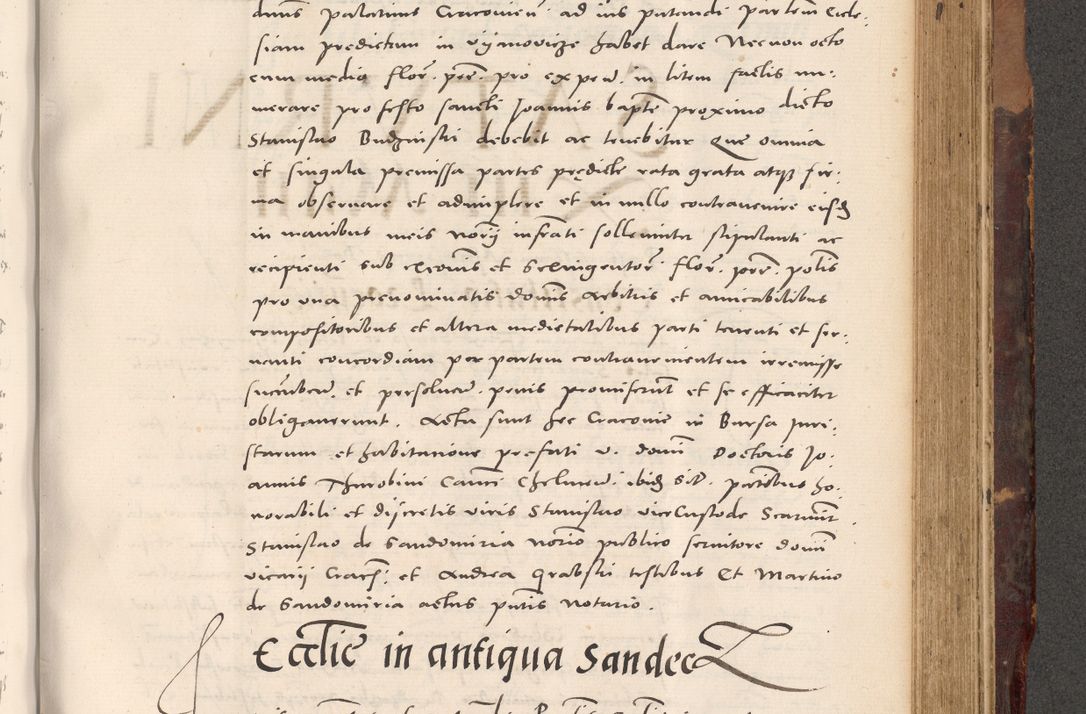 dnus palatinus Cracovien. ad ius patronati partem Eccle-
siam predictum in Vyanovicze habet dare Necnon octo
cum media flor. pcr. pro expen. in litem factis nu-
merare pro festo sancti Joannis bapte proximo dicto
Stanislao Budzinski debebit ac tenebitur Que omnia
et singula premissa partes predicte rata grata atq fir-
ma observare et adimplere et in nullo contravenire eisd
in manibus meis norij infrati sollemniter stipulanti ac
recipienti sub flor. pcr. polis
pro una prenominatis domis Arbitris et amicabilibus
compositoribus et altera medietatibus parti tenenti et ser-
vanti concordiam per partem contravenientem irremisse
succuben. et persolven. penis promiserunt et se efficaciter
obligaverunt. Acta sunt hec Cracovie in Bursa Juri-
starum et habitatione prefati v. domi Doctoris Jo-
annis Thurobini Canci Chelmen. ibid sit. pntibus ho-
norabili et discretis viris Stanislao viceCustode Scarmir.
Stanislao de Sandomiria norio publico servitore domi
vicarij Crac. et Andrea Grabski testibus Et Martino
de Sandomiria actus pntis Notario.
Ecclie in antiqua Sandecz